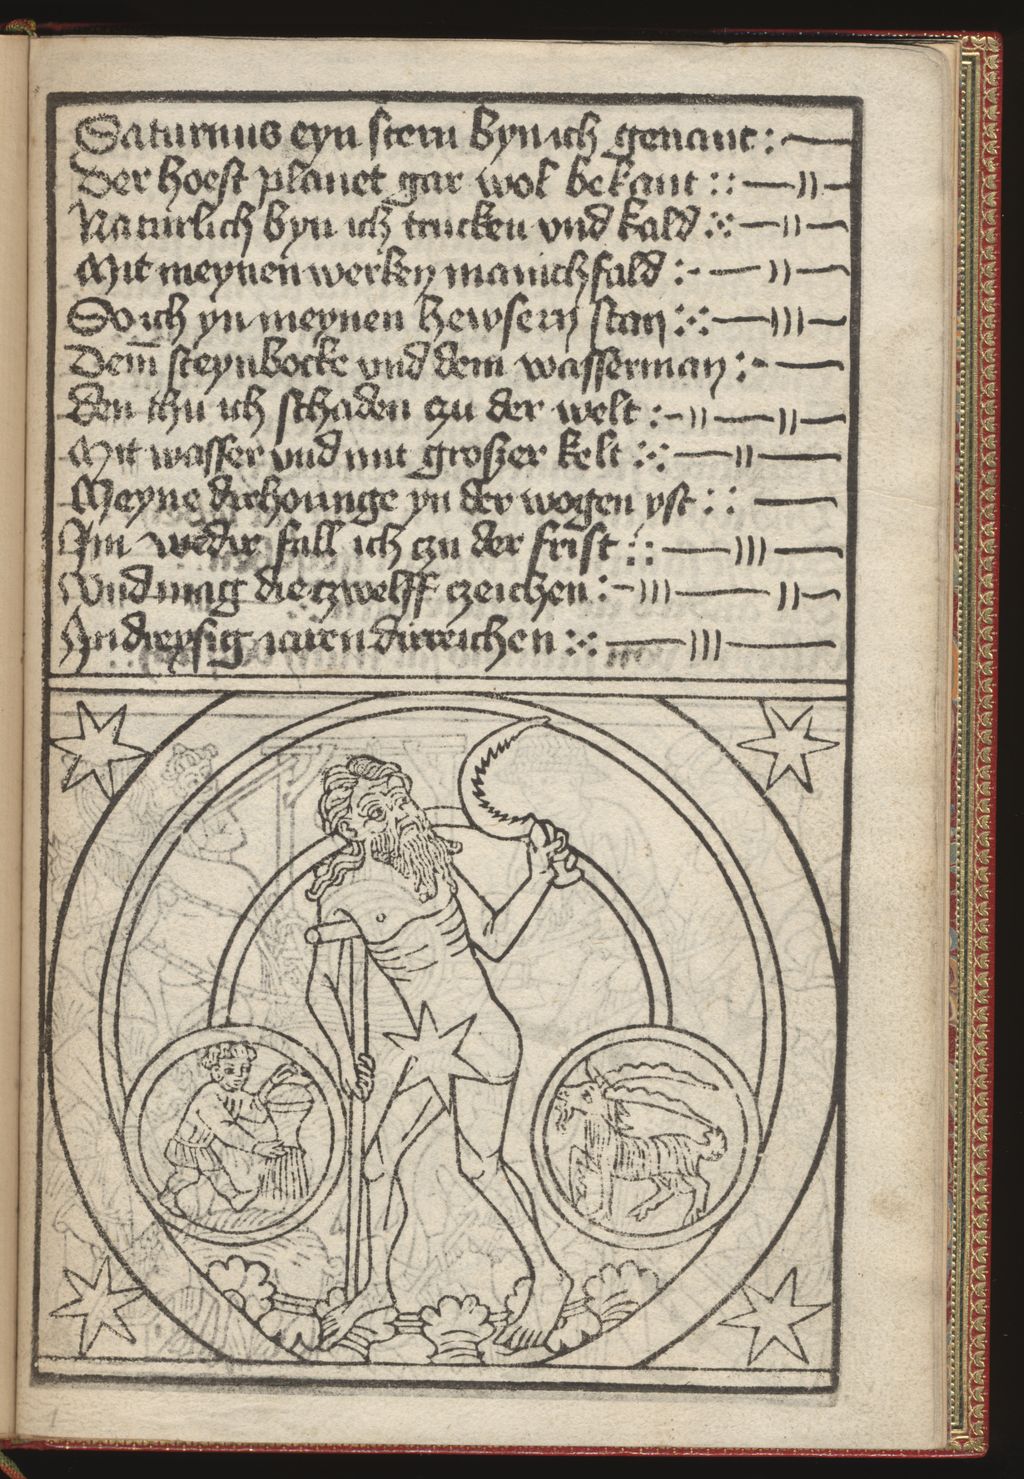 Saturnus eyn stern byn ich genant :
Der hoest planet gar wol bekant : :
Naturlich byn ich trucken vnd kald :·:
Mit meynen werken manichfald :·
So ich yn meynen hewsern stan :·:·
Dem̄ steynbocke vnd dem wasserman :·
Den thu ich schaden czu der welt :·
Mit wasser vnd mit groszer kelt :·:·
Meyne dirhounge yn der wogen yst : :
Im wedir fall ich czu der frist : :
Vnd mag die tzwelff czeichen :·
In dreysig iaren dirreichen :·:·